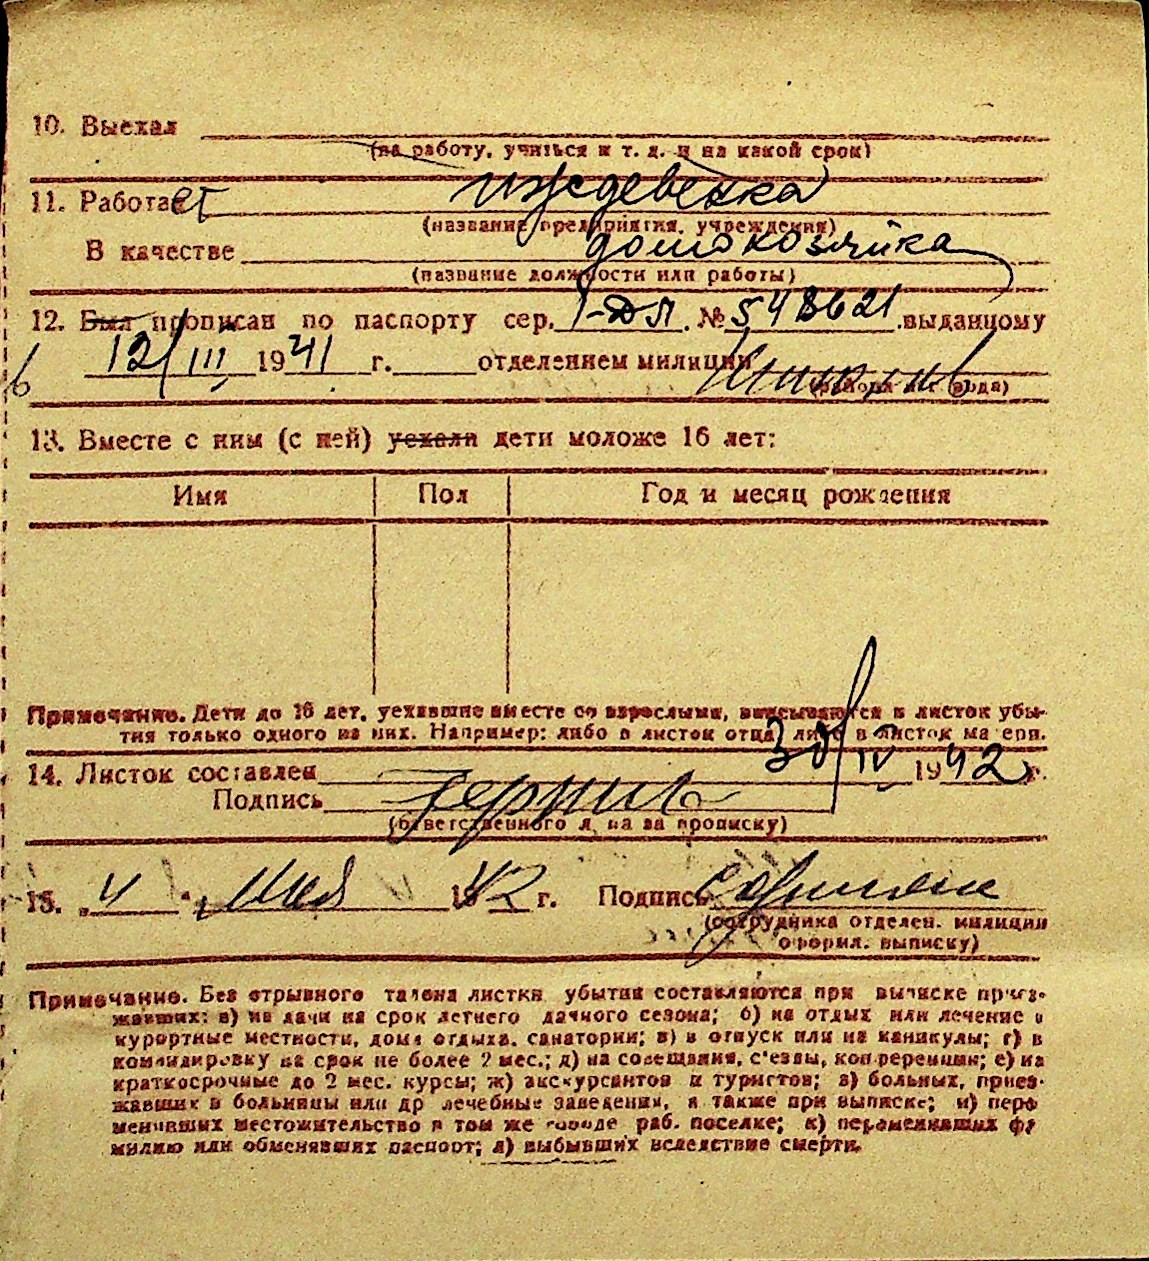 10. Выехал
(на работу, учиться и т. д. и на какой срок)
11. Работает иждевенка
(название предприятия, учреждения)
В качестве домохозяйка
(название должности или работы)
12. Был прописан по паспорту сер. I-ДЛ № 548621 выданному
12/III 1941 г. отделением милиции
(района города)
13. Вместе с ним (с ней) уехали дети моложе 16 лет:
Имя Пол Год и месяц рождения
Примечание. Дети до 16 лет, уехавшие вместе со взрослыми, вписываются в листок убы-
тия только одного из них. Например: либо в листок отца, либо в листок матери.
14. Листок составлен 30/IV 1942 г.
Подпись
(ответственного лица за прописку)
15. „4" Мая 1942 г. Подпись
(сотрудника отделен. милиции
оформл. выписку)
Примечание. Без отрывного талона листки убытия составляются при выписке приез-
жавших: а) на дачи на срок летнего дачного сезона; б) на отдых или лечение в
курортные местности, дома отдыха, санатории; в) в отпуск или на каникулы; г) в
командировку на срок не более 2 мес.; д) на совещания, с'езды, конференции; е) на
краткосрочные до 2 мес. курсы; ж) экскурсантов и туристов; з) больных, приез-
жавших в больницы или др лечебные заведения, а также при выписке; и) пере
менивших местожительство в том же городе раб. поселке; к) переменивших фа
милию или обменявших паспорт; л) выбывших вследствие смерти.